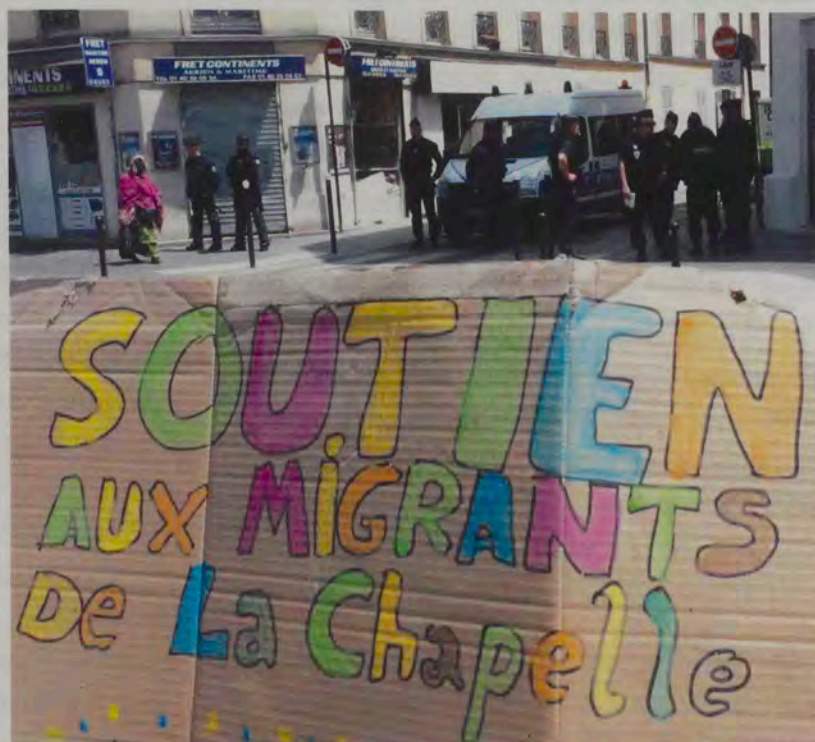 FRET
5
INENTS
FRET CONTINENTS
AERIEN & MARITIME
FRET CONTINENTS
SOUTIEN
AUX MiGRANTS
De La Chapelle